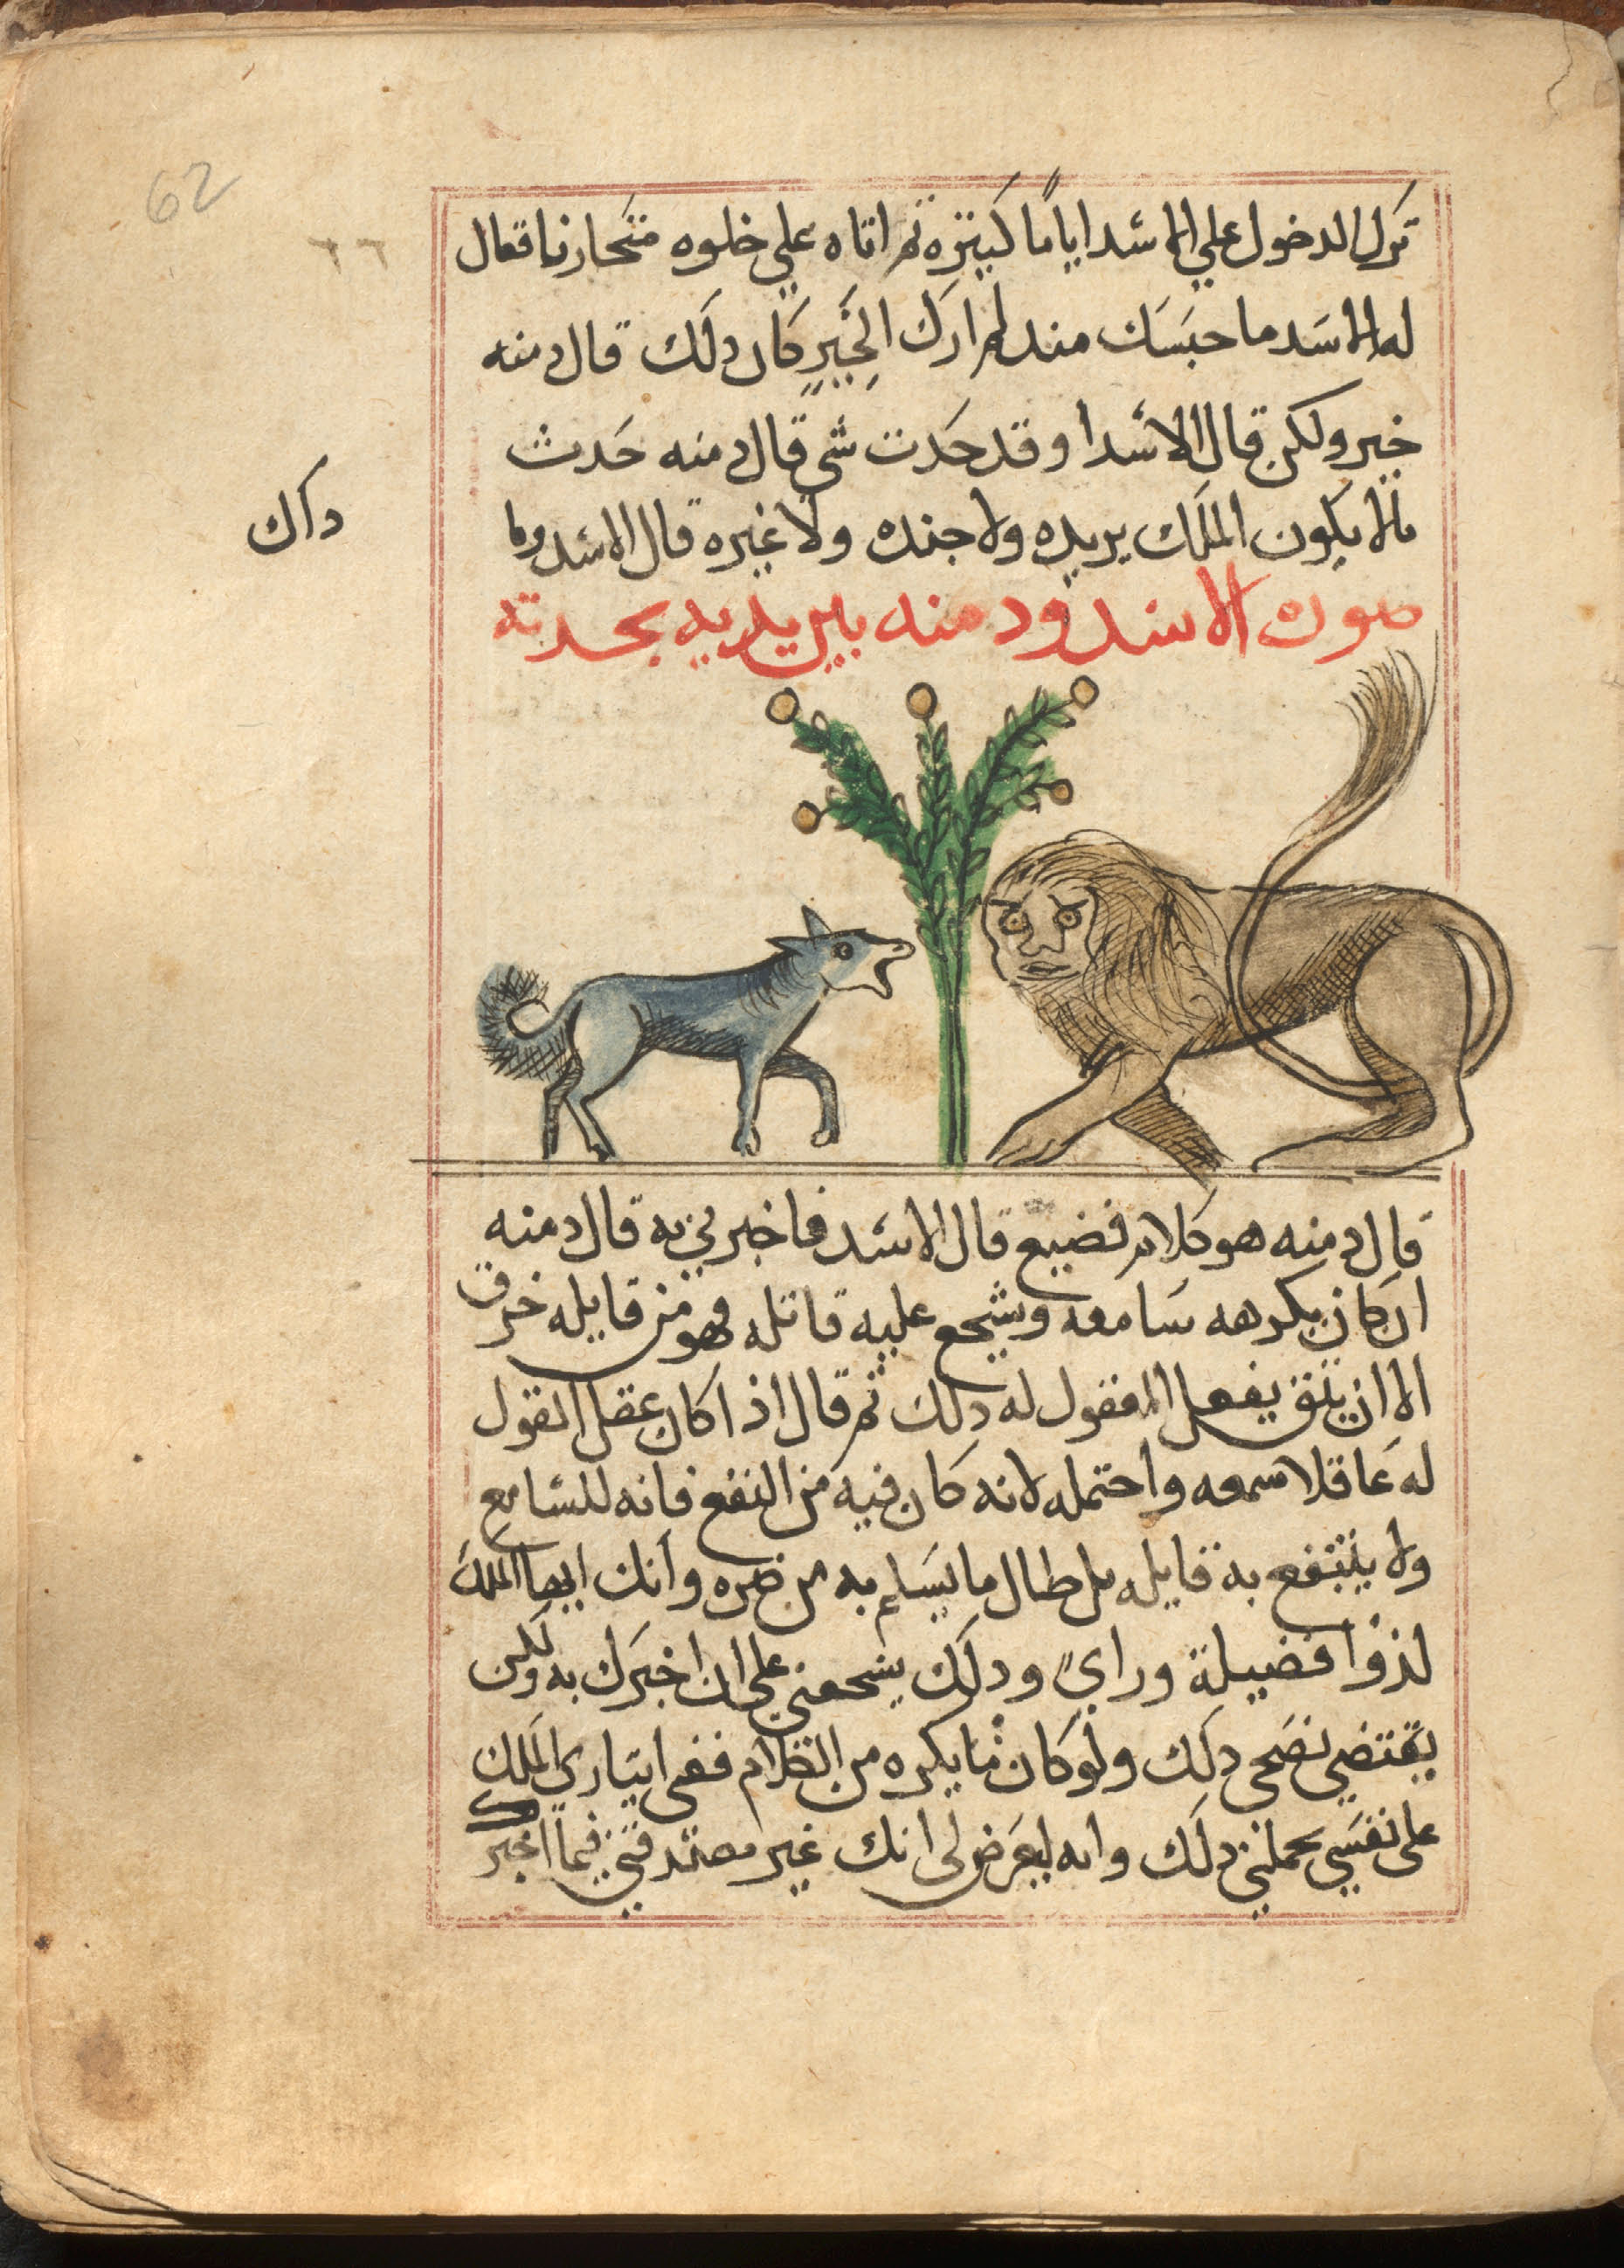 62
٦٦
ترك الدخول علي الاسد اياماً كثيره ثم اتاه علي خلوه متحازنا فقال
له الاسد ما حبسك منذ لم ارك الخيرٍ كان دلك قال دمنه
خير ولكن قال الاسد ا وقد حدت شي قال دمنه حدث
مالا يكون الملك يريده ولا جنده ولا غيره قال الاسد وما
داك
صورة الاسد ودمنه بين يديه يحدته
قال دمنه هو كلام فضيع قال الاسد فاخبرني به قال دمنه
ان كان يكرهه سامعه ويشجع عليه قاتله فهو من قايله خرق
الا ان يتق بفعل المقول له دلك ثم قال اذا كان عقل المقول
له عاقلا سمعه واحتمله لانه كان فيه من النفع فانه للسامع
ولا ينتفع به قايله بل طال ما يسلم به من ضره وانك ايها الملك
لذوا فضيلة وراي ودلك يشجعني علي ان اخبرك به ولكن
يقتضي نصحى دلك ولو كان مما يكره من الكلام ففى ايتارى الملك
على نفسي يحملني دلك وانه ليعرض لى انك غير مصدقني فيما اخبر